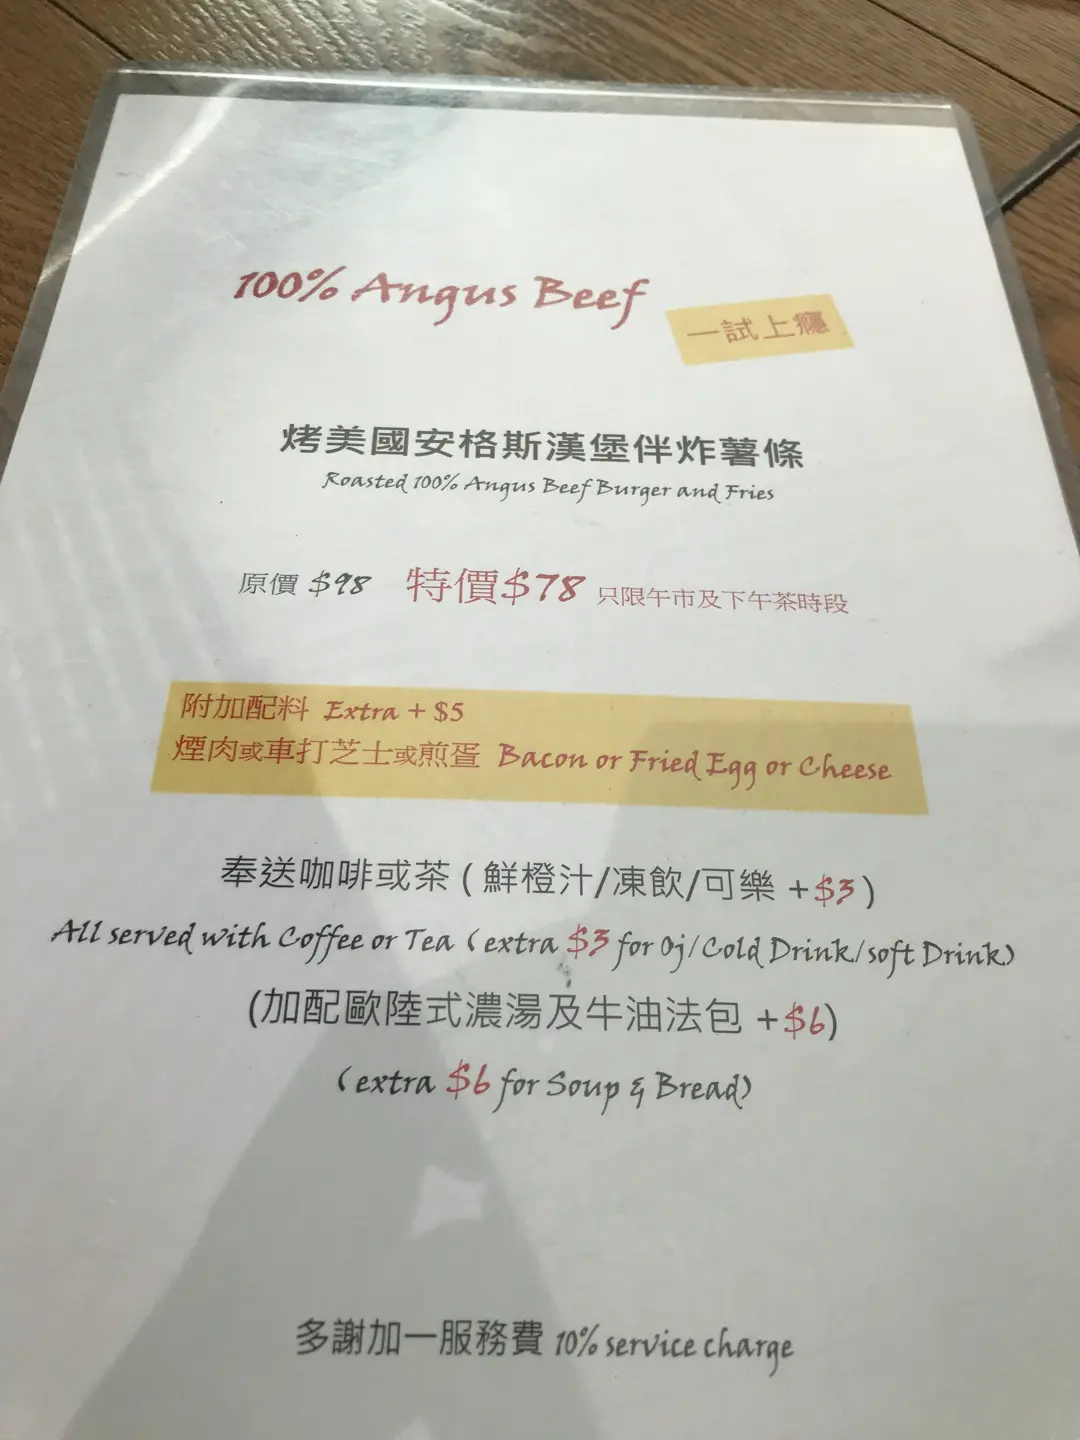 100% Angus Beef
一試上癮
烤美國安格斯漢堡伴炸薯條
Roasted 100% Angus Beef Burger and Fries
原價 $98 特價$78 只限午市及下午茶時段
附加配料 Extra + $5
煙肉或車打芝士或煎蛋 Bacon or Fried Egg or Cheese
奉送咖啡或茶 ( 鮮橙汁/凍飲/可樂 +$3 )
All served with Coffee or Tea (extra $3 for Oj/Cold Drink/soft Drink)
(加配歐陸式濃湯及牛油法包 +$6)
(extra $6 for Soup & Bread)
多謝加一服務費 10% service charge